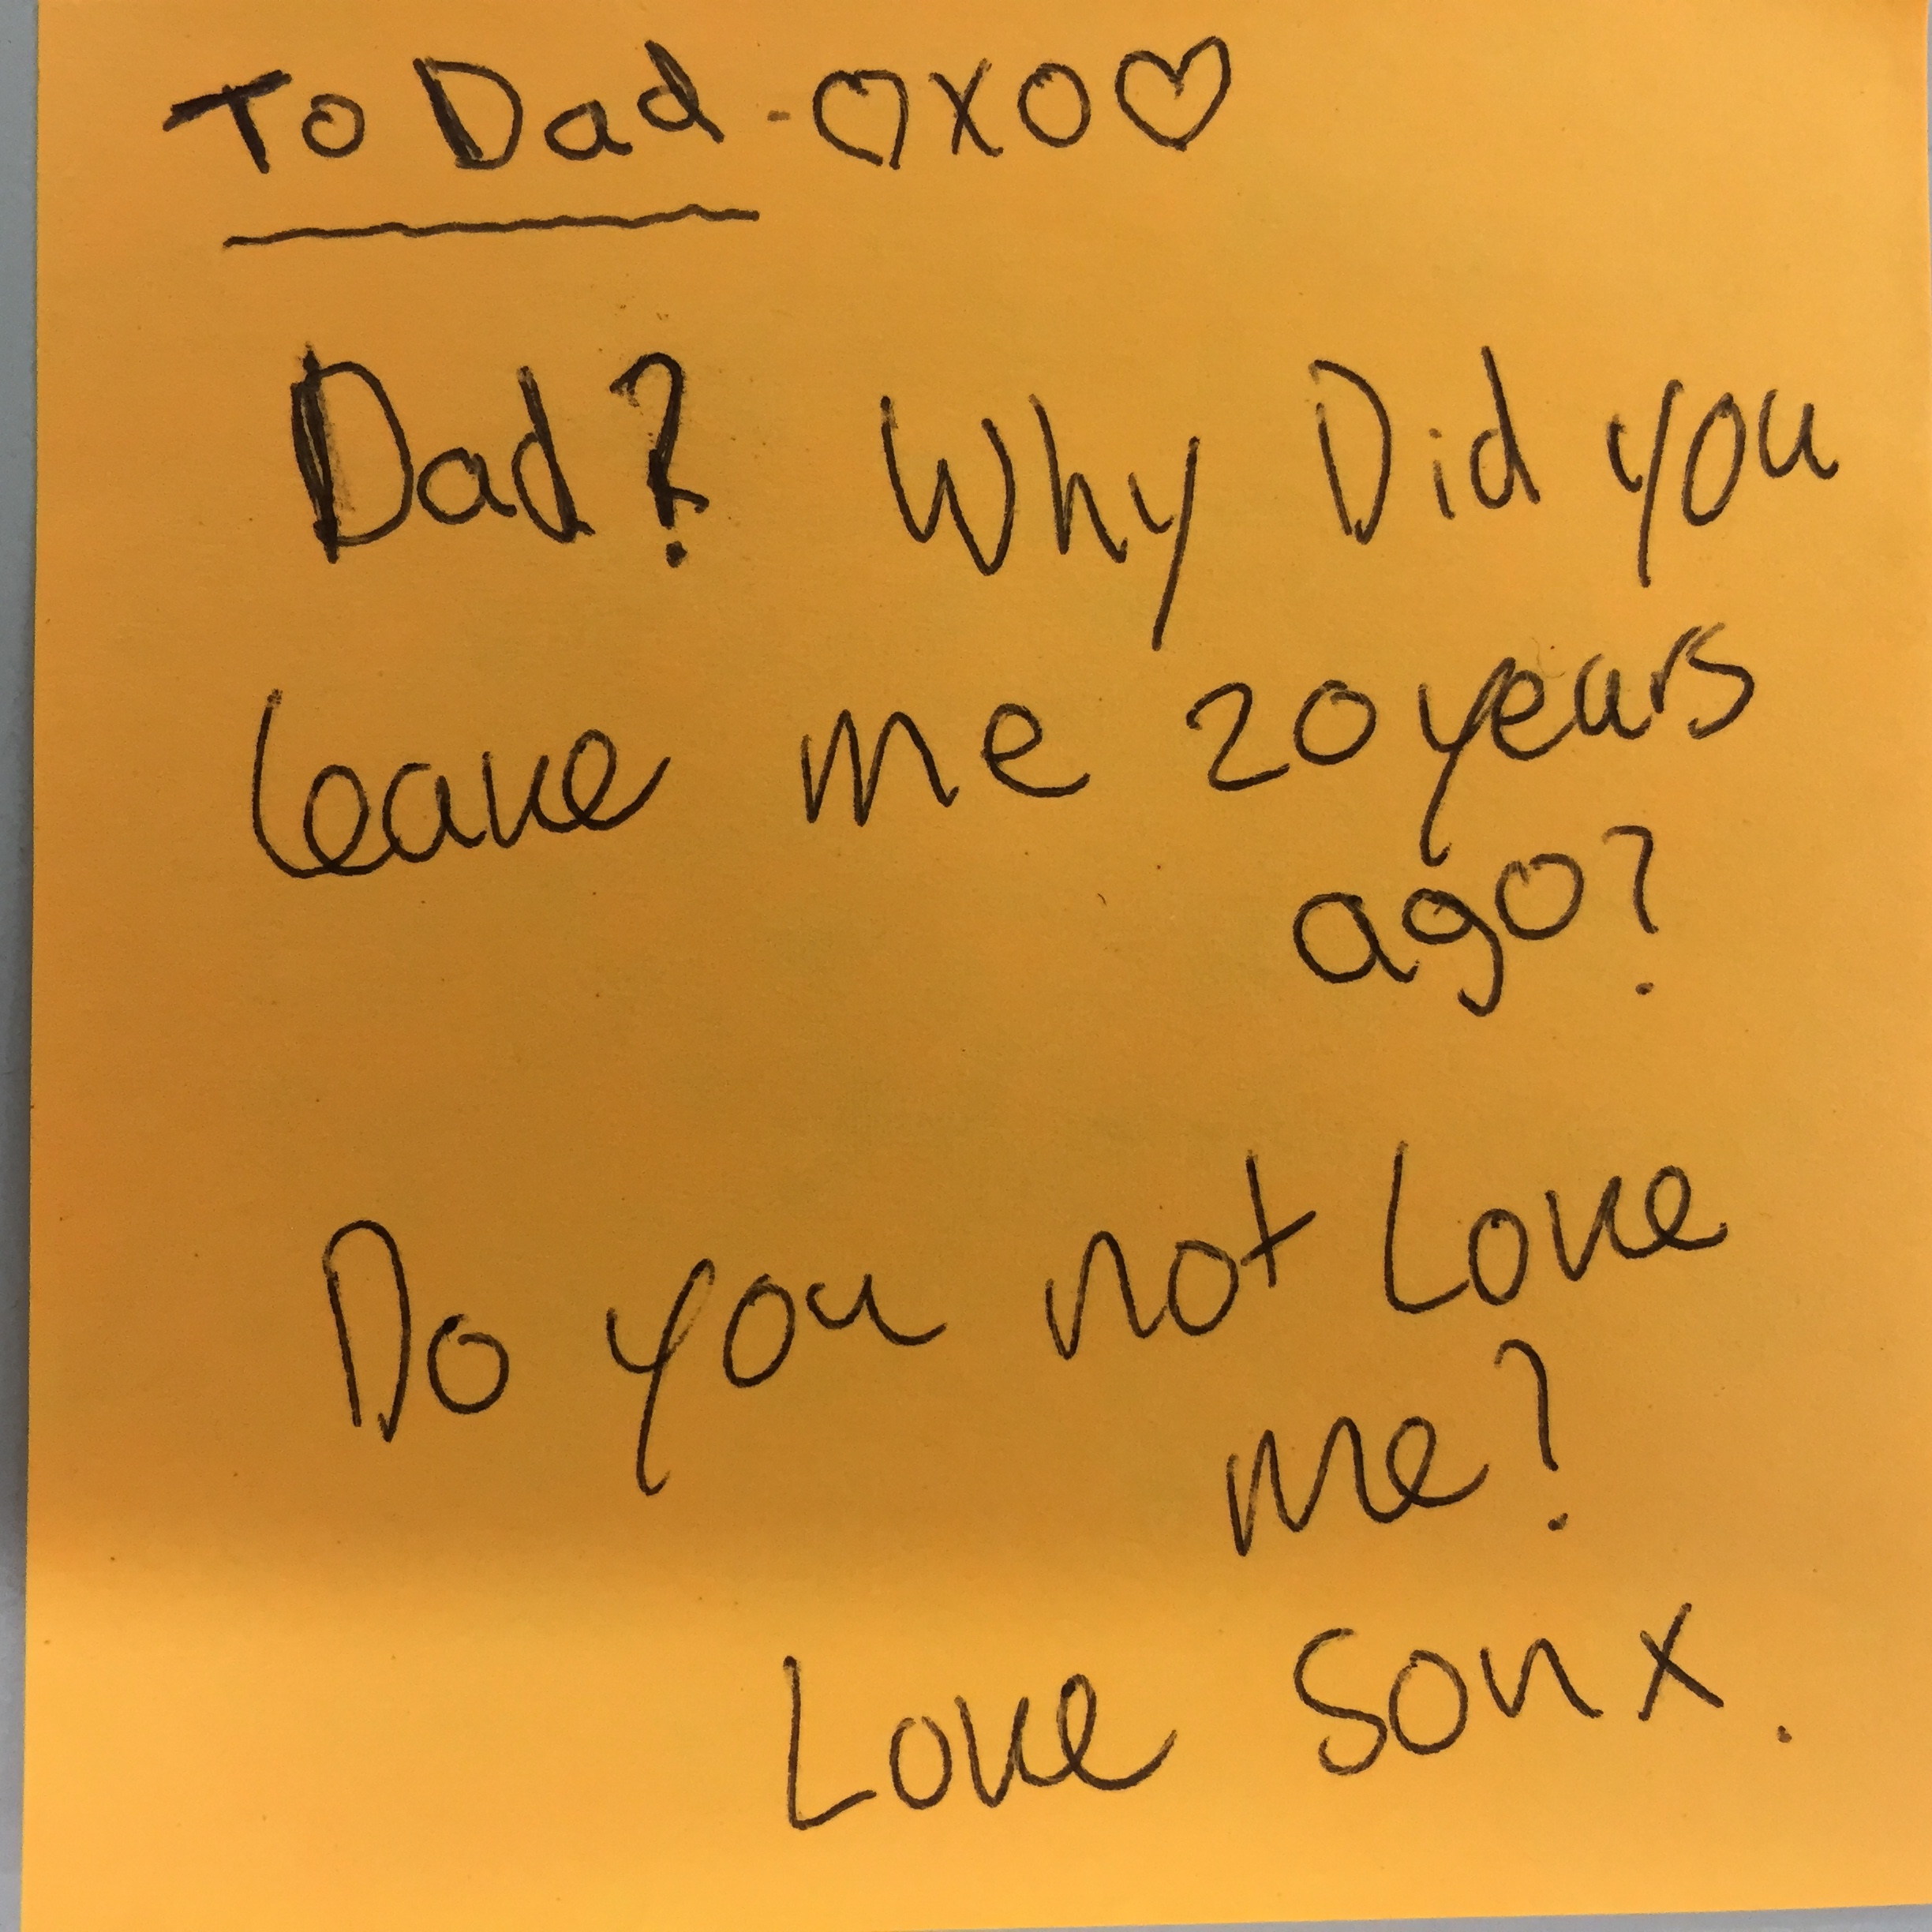 To Dad - ♡XO♡
Dad? Why Did you
leave me 20 years
ago?
Do you not Love
me?
Love Son x.